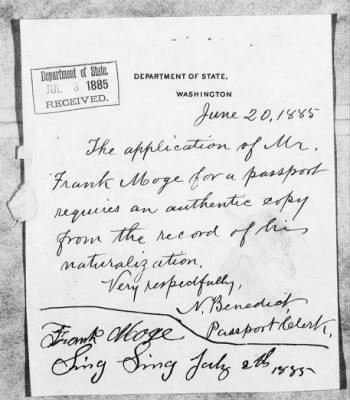 Department of State.
JUL 3 1885
RECEIVED.
DEPARTMENT OF STATE,
WASHINGTON
June 20, 1885
The application of Mr.
Frank Moge for a passport
requires an authentic copy
from the record of his
naturalization.
Very respectfully,
N. Benedict,
Passport Clerk.
Frank Moge
Sing Sing July 2th 1885